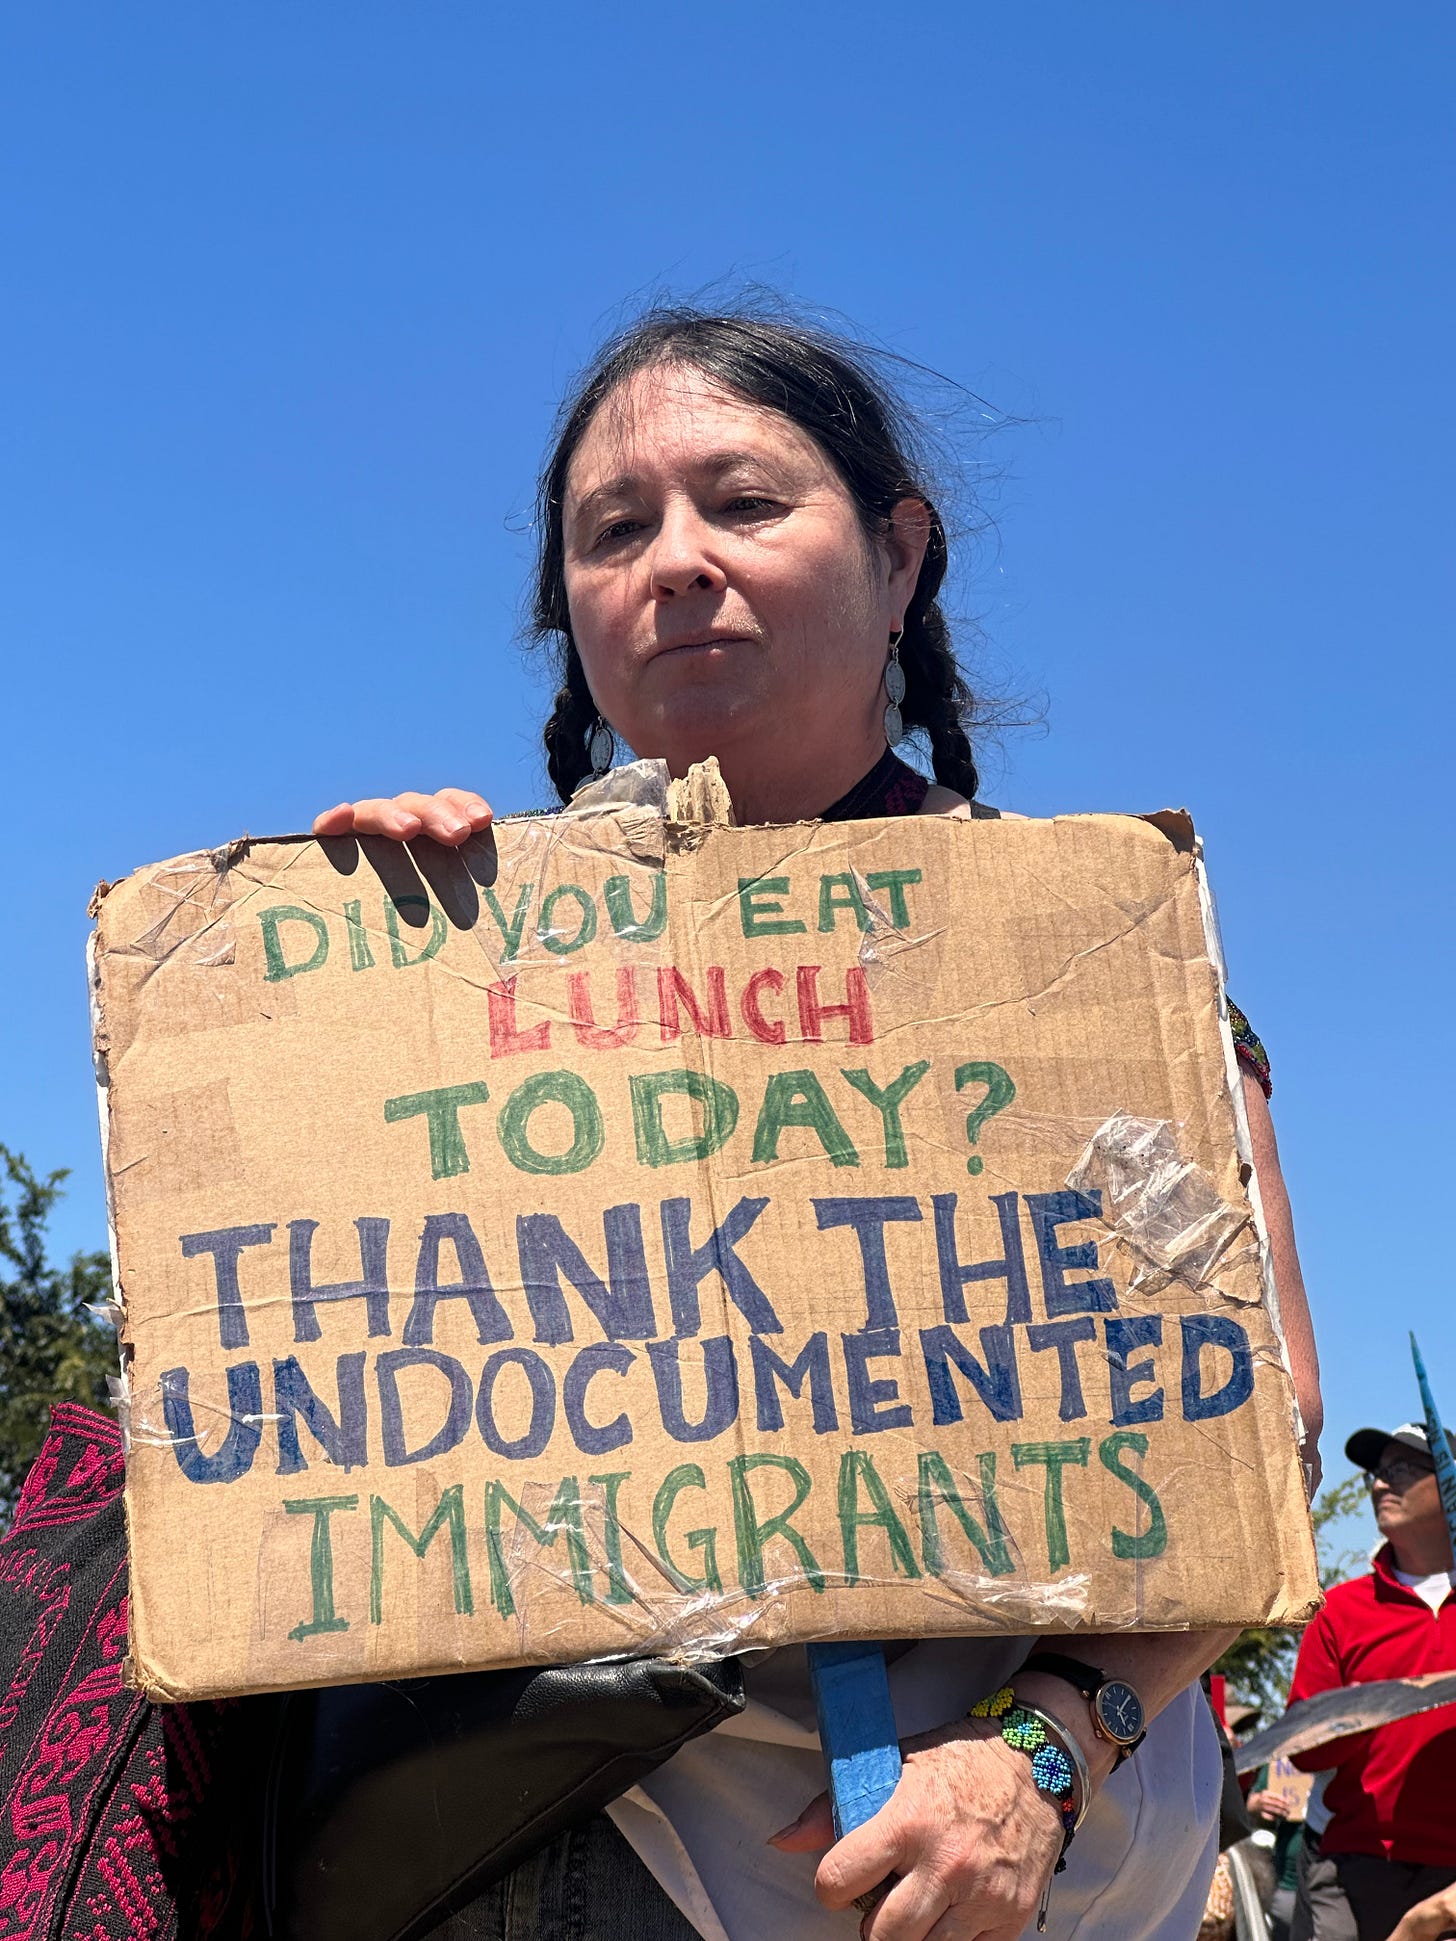 DID YOU EAT
LUNCH
TODAY?
THANK THE
UNDOCUMENTED
IMMIGRANTS